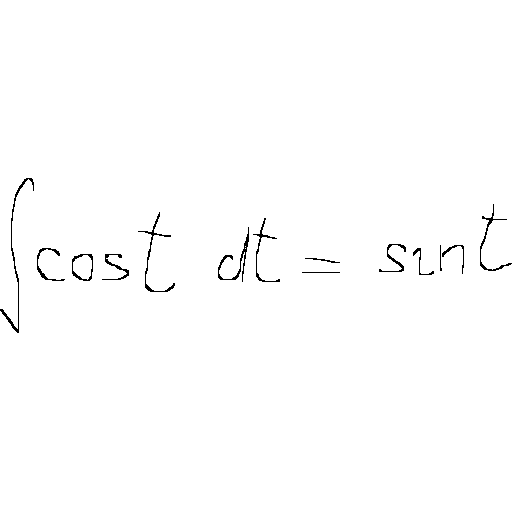 ∫cost dt = sint